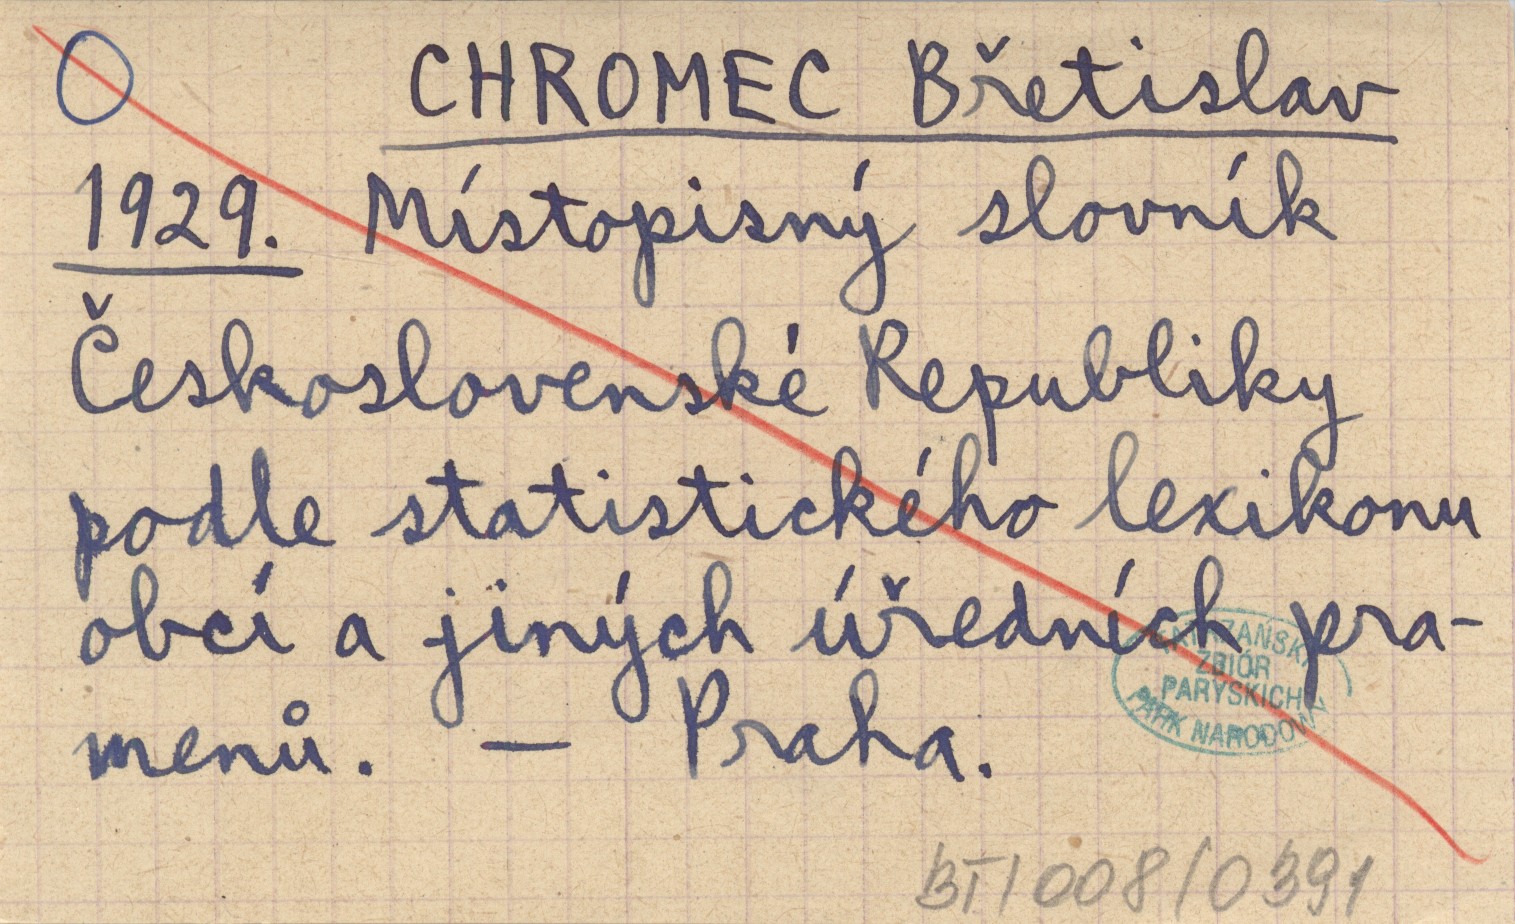 CHROMEC Břetislav
1929. Místopisný slovník
Československé Republiky
podle statistického lexikonu
obcí a jiných úředních pra-
menů. — Praha.
ZBIÓR
PARYSKICH
PARK NARODOWY
BT/008/0391